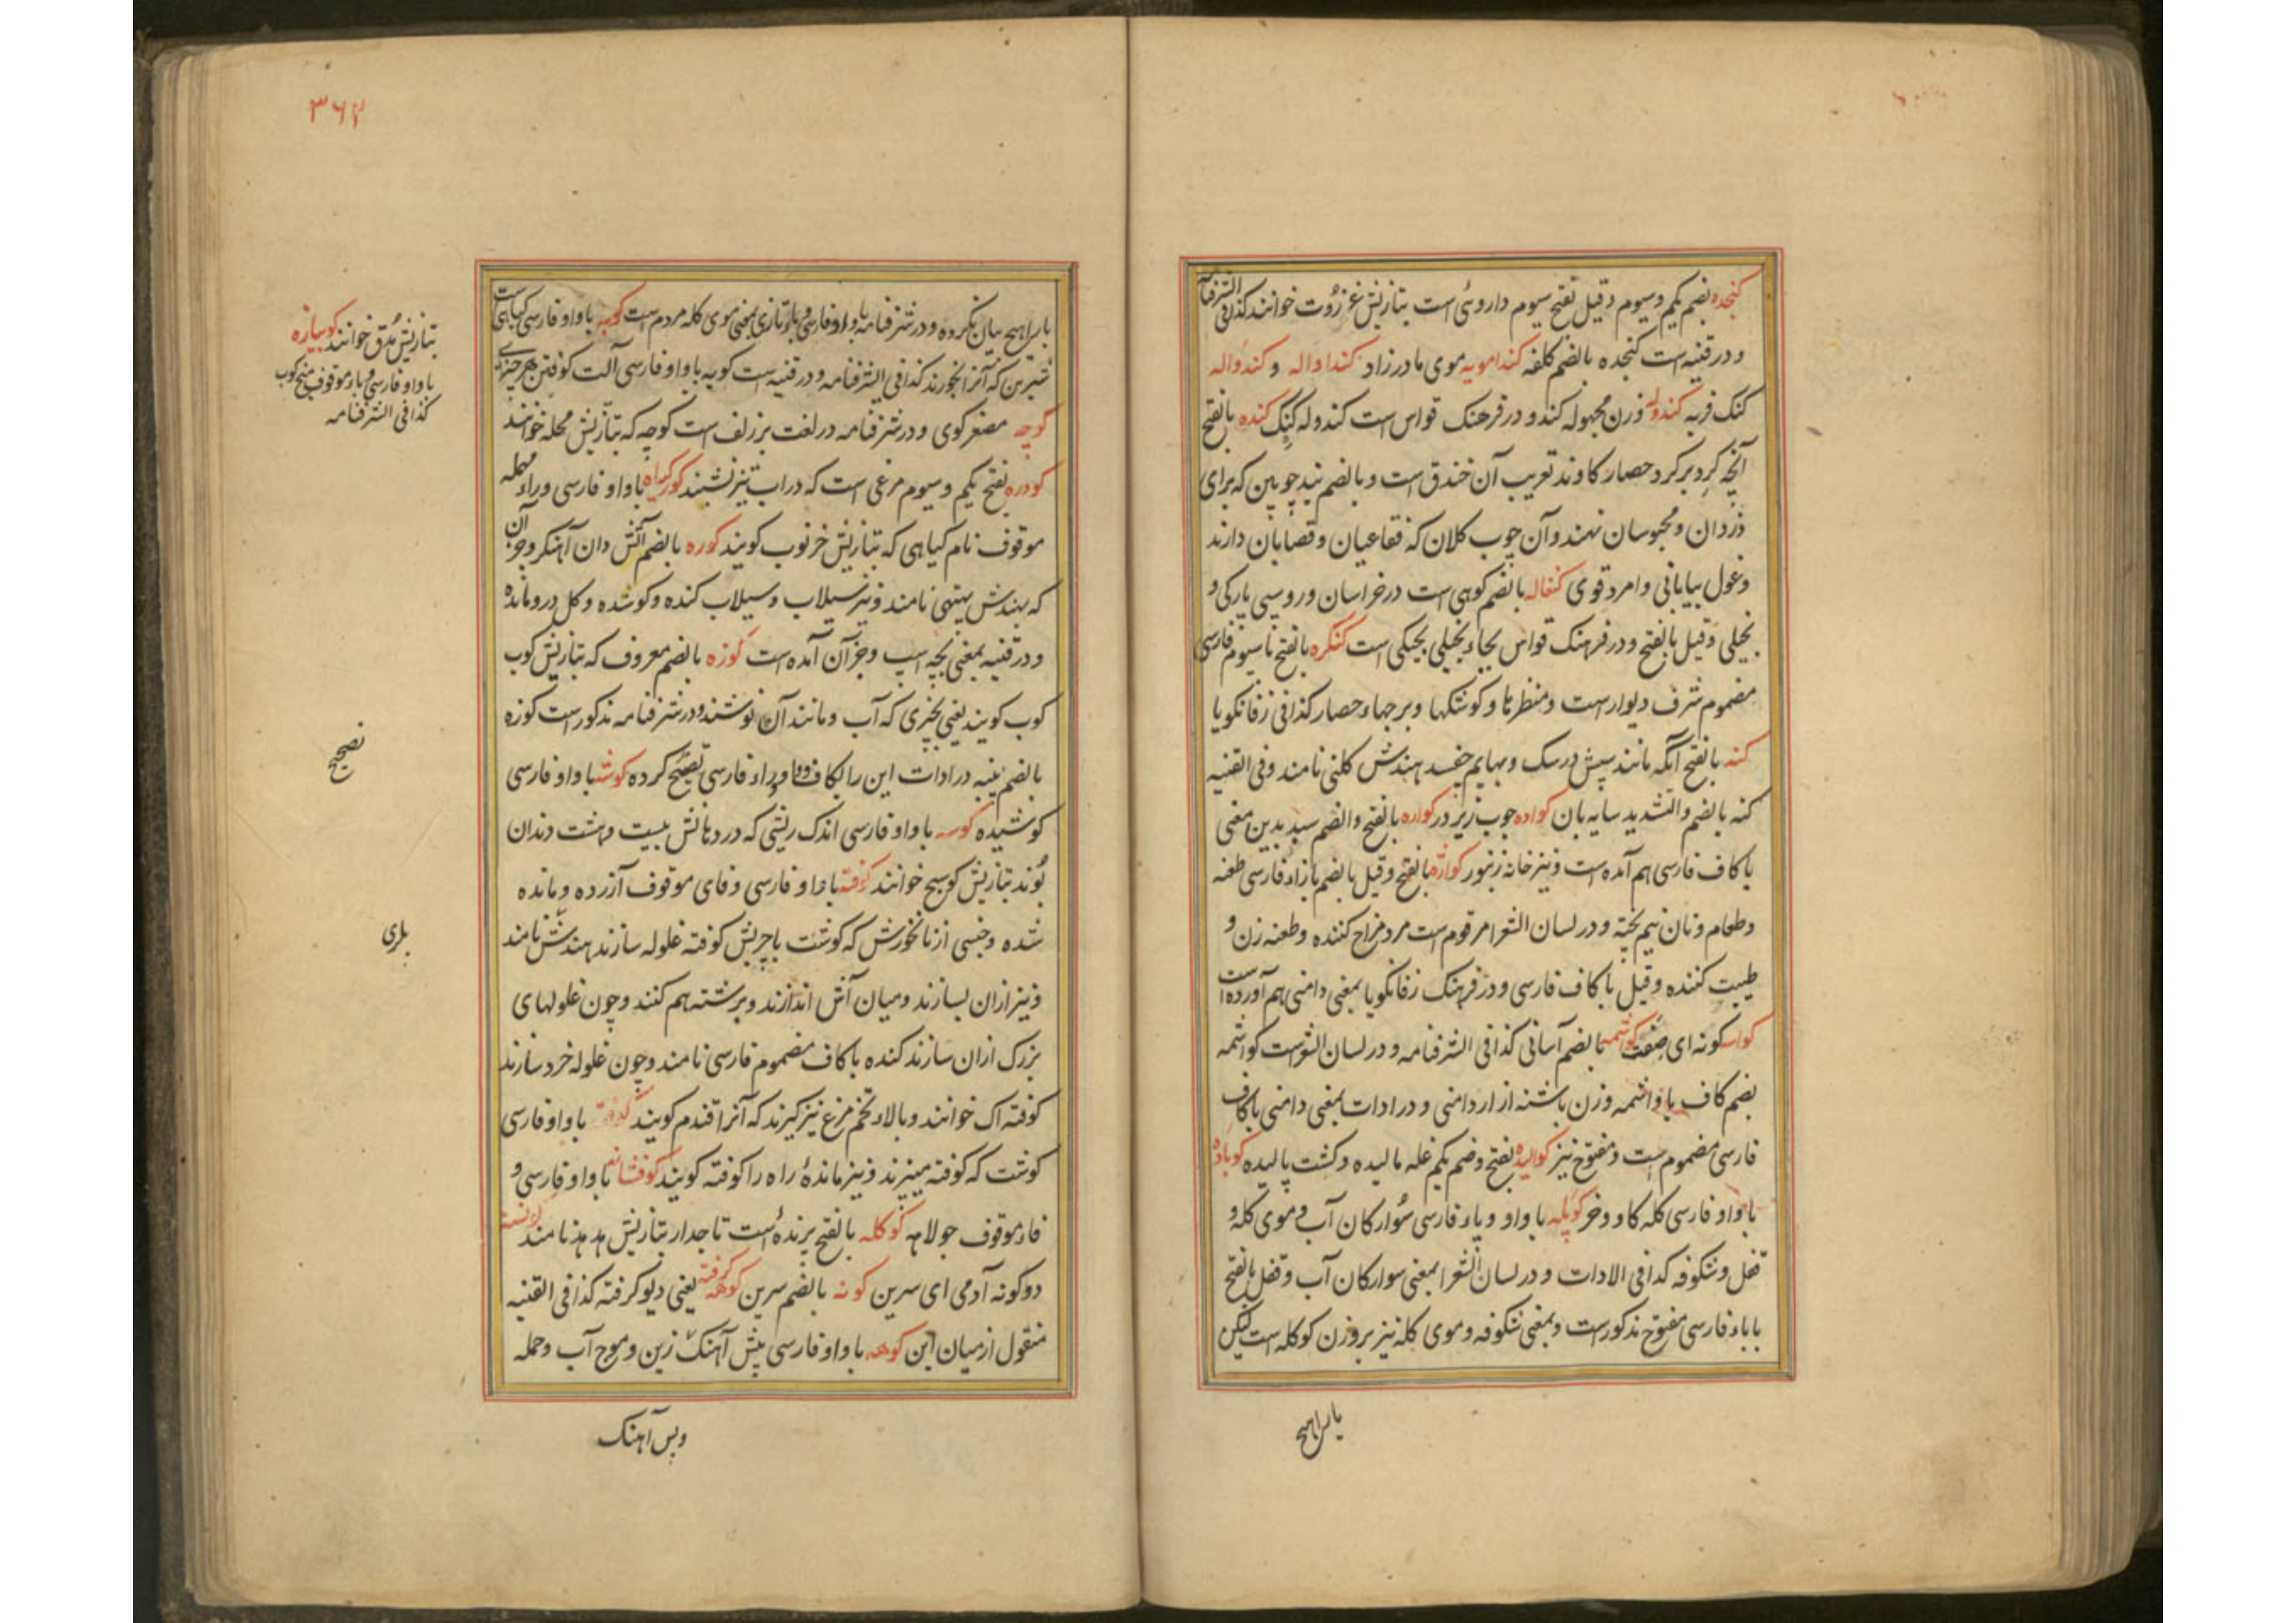 کنجده بضم یکم و سیوم و قیل بفتح سیوم داروئی است بتازیش عنزروت خوانند کذا فی الشرفنامه
و در قنیه است کنجده بالضم کلفه کندامویه موی مادرزاد کنداواله و کندواله
کنک فربه کندوله وزن مجهوله کندو در فرهنک قواس است کندوله کنک کنده بالفتح
آنچه کرد بر کرد حصار کاوند تعریب آن خندق است و بالضم بند چوبین که برای
دزدان و محبوسان نهند و آن چوب کلان که فقاعیان و قصابان دارند
و غول بیابانی و امرد قوی کنغاله بالضم کوهی است در خراسان و روسی بارکی و
بخیلی و قیل بالفتح و در فرهنک قواس بجاء بخیلی بجیکی است کنکره بالفتح تا سیوم فارسی
مضموم شرف دیوار است و منظرها و کوشکها و برجهاء حصار کذا فی زفانکویا
کنه بالفتح آنکه مانند سپش در سک و بهایم چفسد هندش کلنی نامند و فی القنیه
کنه بالضم و التشدید سایه بان کواده چوب زیر در کواره بالفتح و الضم سبد بدین معنی
با کاف فارسی هم آمده است و نیز خانه زنبور کواژه بالفتح و قیل بالضم با زاء فارسی طعنه
و طعام و نان نیم پخته و در لسان الشعرا مرقوم است مرد مزاح کننده و طعنه زن و
طیبت کننده و قیل با کاف فارسی و در فرهنک زفانکویا بمعنی دامنی هم آورده است
کواسه کونه ای صفت کواشمه بالضم آسانی کذا فی الشرفنامه و در لسان الشعراست کواشمه
بضم کاف با واشمه وزن باشنه ازار دامنی و در ادات بمعنی دامنی با کاف
فارسی مضموم است و مفتوح نیز کوالیده بفتح و ضم یکم غله مالیده و کشت بالیده کوباده
با واو فارسی کله کاو و خر کوپله با واو و باء فارسی سوارکان آب و موی کله و
قفل و شکوفه کذا فی الادات و در لسان الشعرا بمعنی سوارکان آب و قفل بالفتح
با باء فارسی مفتوح مذکور است و بمعنی شکوفه و موی کله نیز بر وزن کوکله است لیکن
۳۶۲
با راء هیچ بیان نکرده و در شرفنامه با واو فارسی و باء تازی بمعنی موی کله مردم است کوبه با واو فارسی کیاهی است
شیرین که آنرا بخورند کذا فی الشرفنامه و در قنیه است کوبه با واو فارسی آلت کوفتن هر چیزی
کوچه مصغر کوی و در شرفنامه در لغت برزلف است کوچه که بتازیش محله خوانند
کودره بفتح یکم و سیوم مرغی است که در آب تیز نشیند کورکیاه با واو فارسی و راء مهمله
موقوف نام کیاهی که بتازیش خرنوب کویند کوره بالضم آتش دان آهنکر و جز آن
که بهندش بهتهی نامند و نیز سیلاب و سیلاب کنده و کوشده و کل درو مانده
و در قنیه بمعنی بچه اسپ و جز آن آمده است کوزه بالضم معروف که بتازیش کوب
کوب کویند یعنی چیزی که آب و مانند آن نوشند و در شرفنامه مذکور است کوزه
بالضم پنبه در ادات این را بکاف و واو و زاء فارسی تصحیح کرده کوشه با واو فارسی
کوشیده کوسه با واو فارسی اندک ریشی که در دهانش بیست و هشت دندان
بوند بتازیش کوسج خوانند کوفته با واو فارسی و فای موقوف آزرده و مانده
شده و جنسی از نانخورش که کوشت با چربش کوفته غلوله سازند هندش نامند
و نیز ازان بسازند و میان آتش اندازند و برشته هم کنند و چون غلولهای
بزرک ازان سازند کنده با کاف مضموم فارسی نامند و چون غلوله خرد سازند
کوفته اک خوانند و بالاء تخم مرغ نیز کیرند که آنرا قندم کویند با واو فارسی
کوشت که کوفته میپزند و نیز ماندهٔ راه را کوفته کویند کوفشانه با واو فارسی و
فاء موقوف جولاهه کوکله بالفتح پرندهٔ است تاجدار بتازیش هدهد نامند
دوکونه آدمی ای سرین کونه بالضم سرین کوهه کرفته یعنی دیو کرفته کذا فی القنیه
منقول از میان این کوهه با واو فارسی پیش آهنک زین و موج آب و حمله
بتازیش مدق خوانند کوبیازه
با واو فارسی و باء موقوف میخ کوب
کذا فی الشرفنامه
تصحیح
بلری
با راء هیچ
و پس آهنک